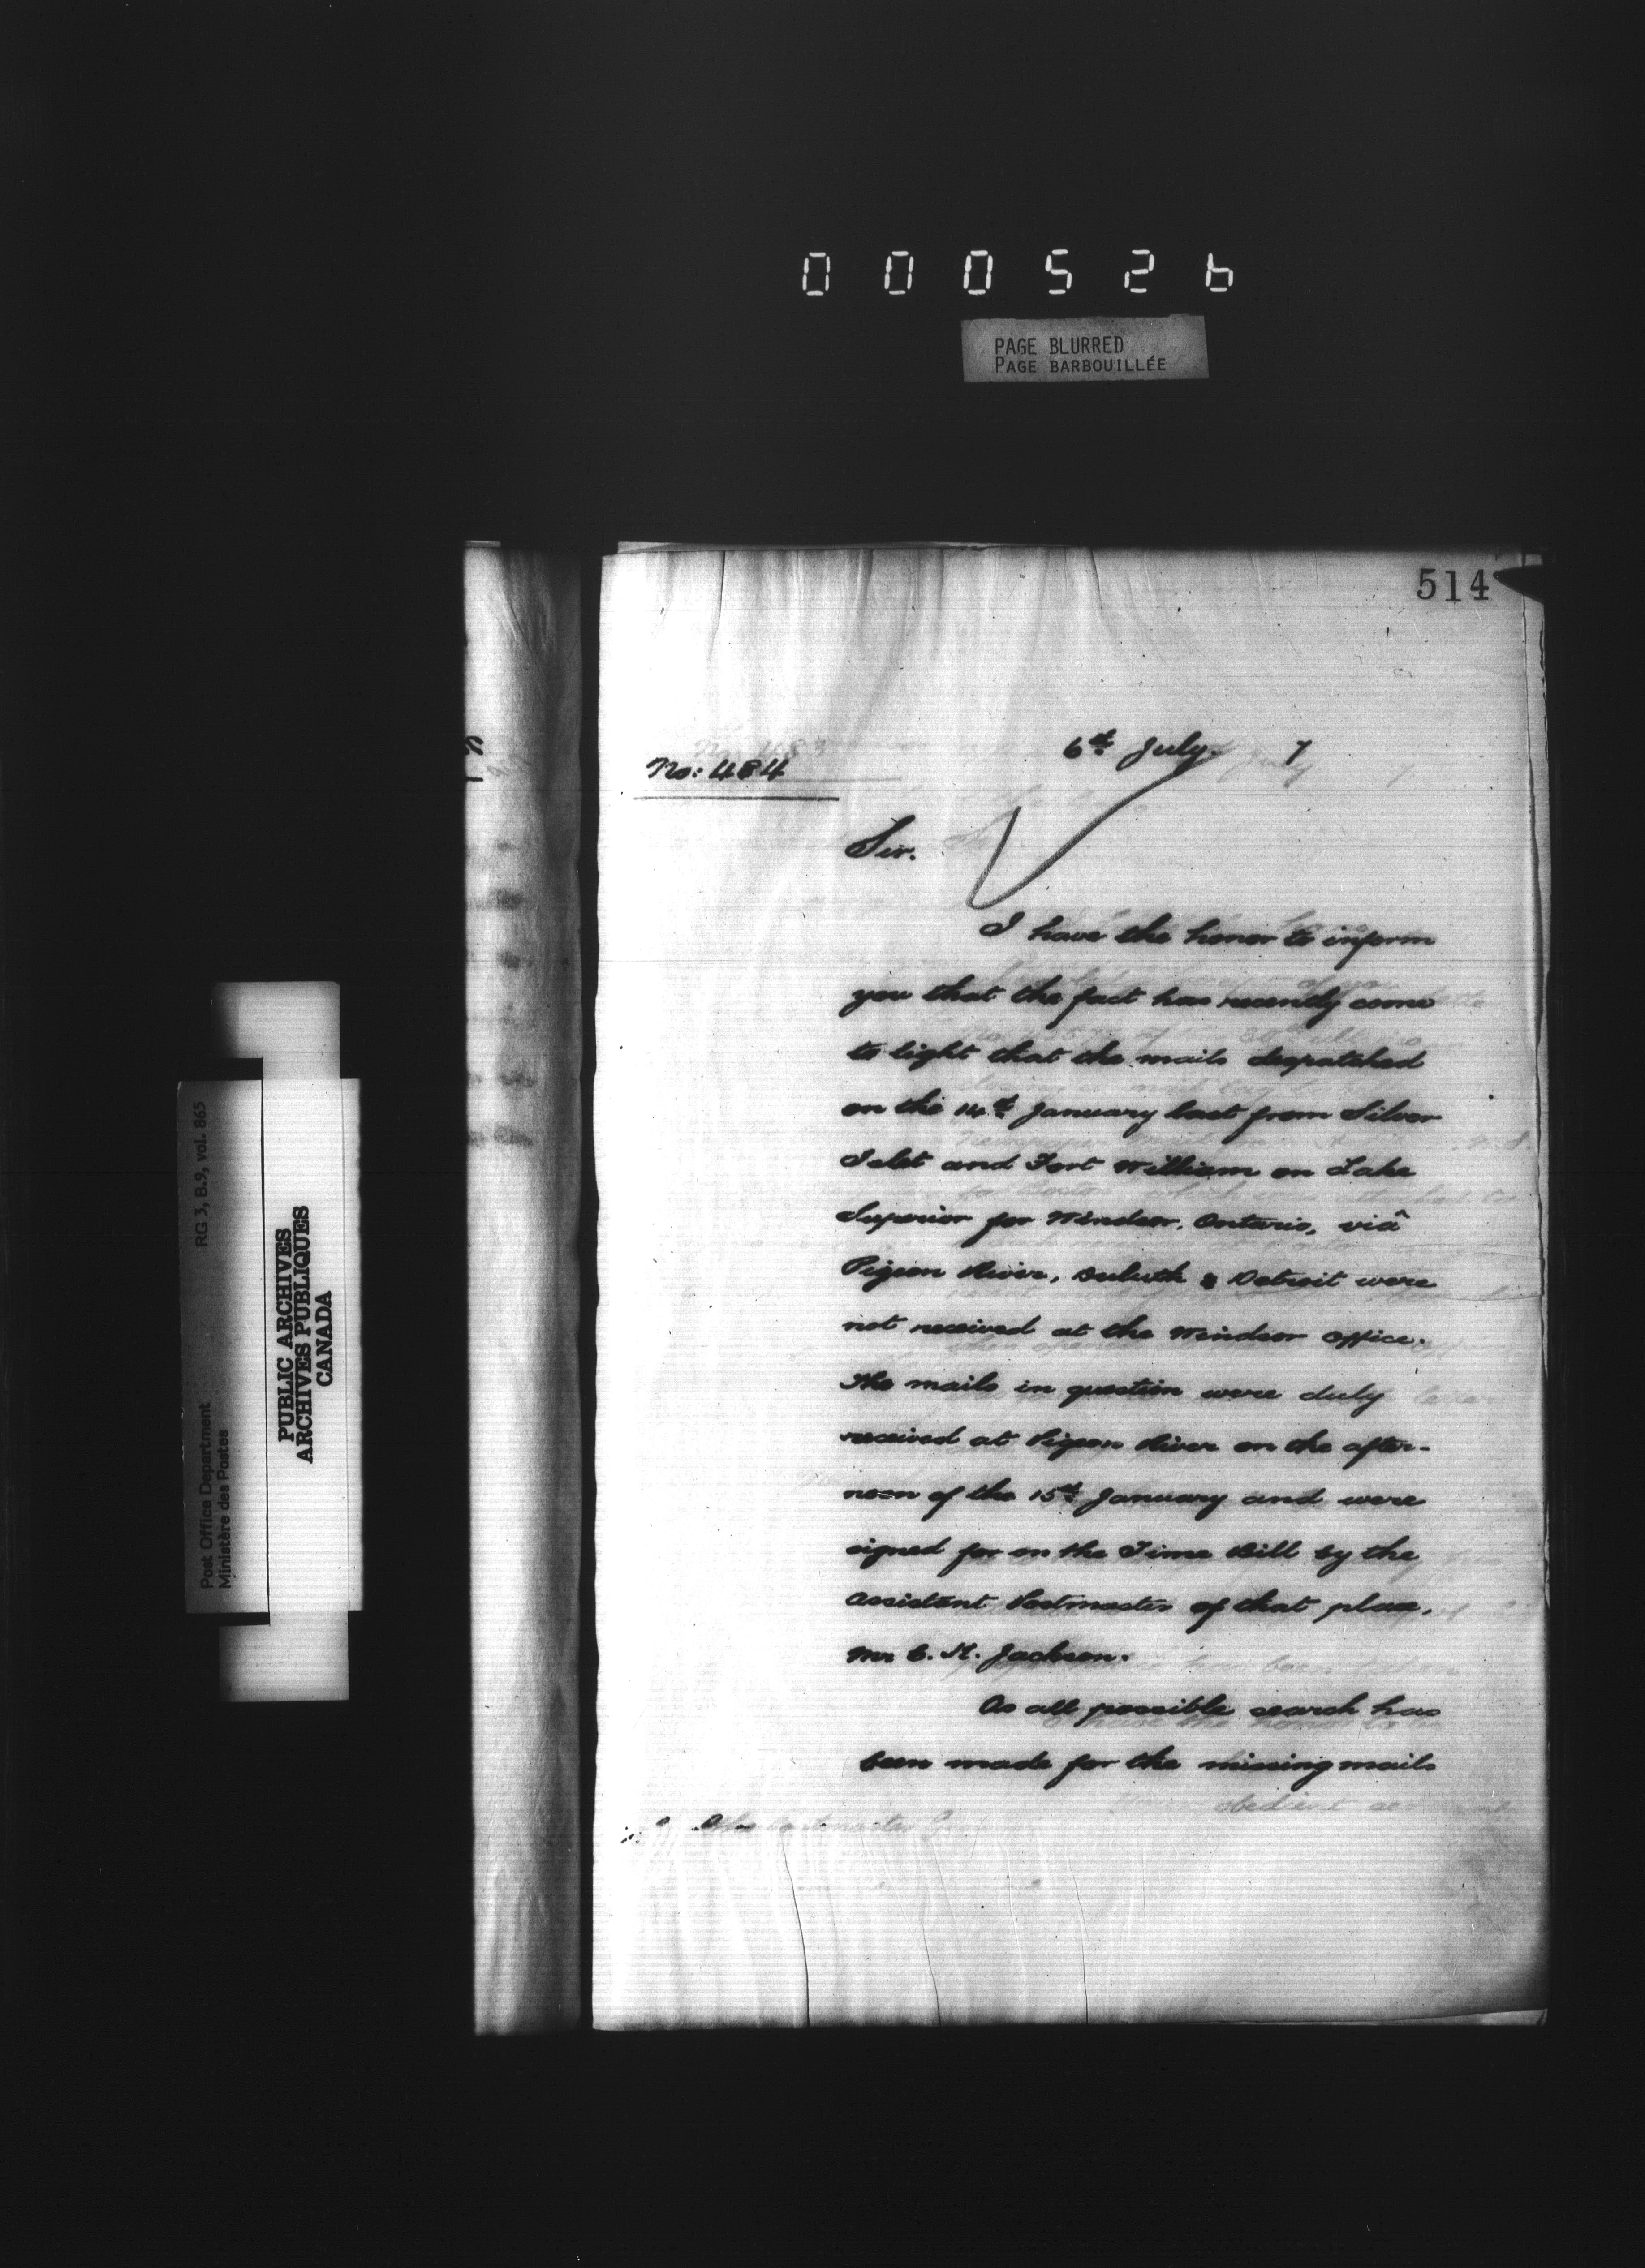 000526
PAGE BLURRED
PAGE BARBOUILLÉE
514
No: 484
6th July. 7
Sir.
I have the honor to inform
you that the fact has recently come
to light that the mails despatched
on the 14th January last from Silver
Islet and Fort William on Lake
Superior for Windsor, Ontario, viâ
Pigeon River, Duluth & Detroit were
not received at the Windsor office.
The mails in question were duly
received at Pigeon River on the after-
noon of the 15th January and were
signed for on the Time Bill by the
Assistant Postmaster of that place,
Mr C. H. Jackson.
As all possible search has
been made for the missing mails
RG 3, B.9, vol. 865
Post Office Department
Ministère des Postes
PUBLIC ARCHIVES
ARCHIVES PUBLIQUES
CANADA